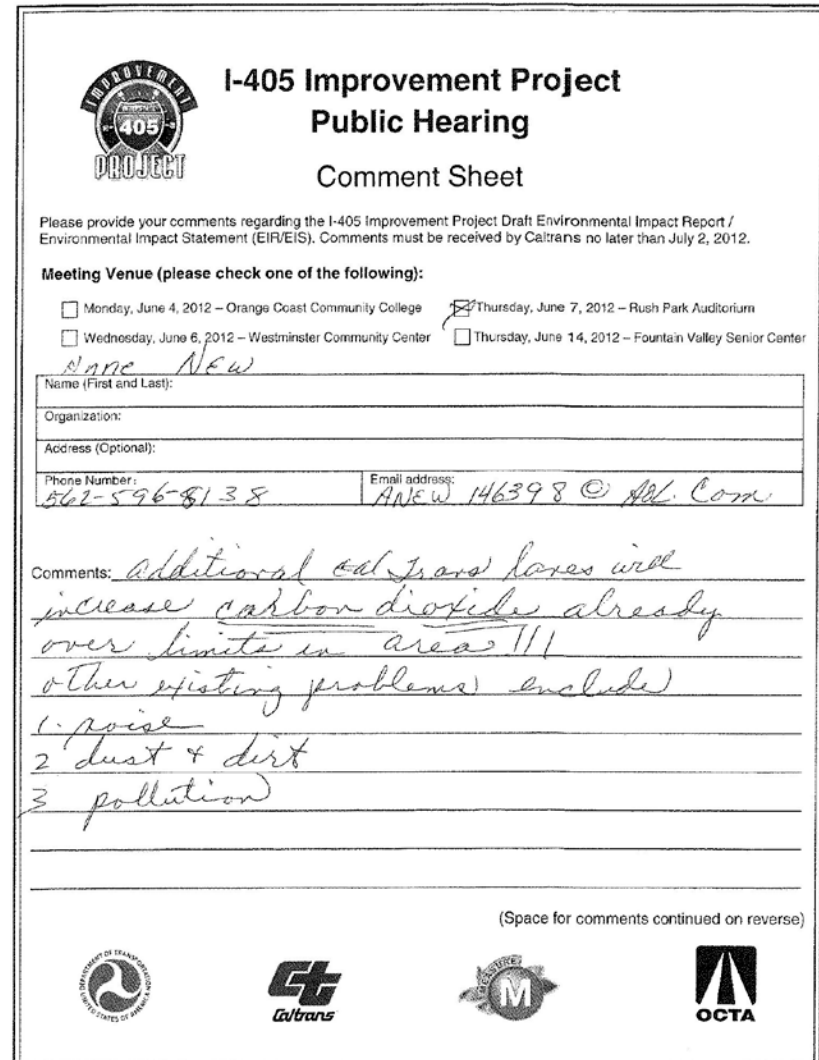 IMPROVEMENT
INTERSTATE
405
PROJECT
I-405 Improvement Project
Public Hearing
Comment Sheet
Please provide your comments regarding the I-405 Improvement Project Draft Environmental Impact Report /
Environmental Impact Statement (EIR/EIS). Comments must be received by Caltrans no later than July 2, 2012.
Meeting Venue (please check one of the following):
Monday, June 4, 2012 – Orange Coast Community College
Thursday, June 7, 2012 – Rush Park Auditorium
Wednesday, June 6, 2012 – Westminster Community Center
Thursday, June 14, 2012 – Fountain Valley Senior Center
Anne New
Name (First and Last):
Organization:
Address (Optional):
Phone Number:
562-596-8138
Email address:
ANEW 146398 @ AOL. Com
Comments: additional Cal Trans lanes will
increase carbon dioxide already
over limits in area !!!
other existing problems include
1. noise
2 dust & dirt
3 pollution
(Space for comments continued on reverse)
DEPARTMENT OF TRANSPORTATION
UNITED STATES OF AMERICA
Caltrans
MEASURE
M
OCTA